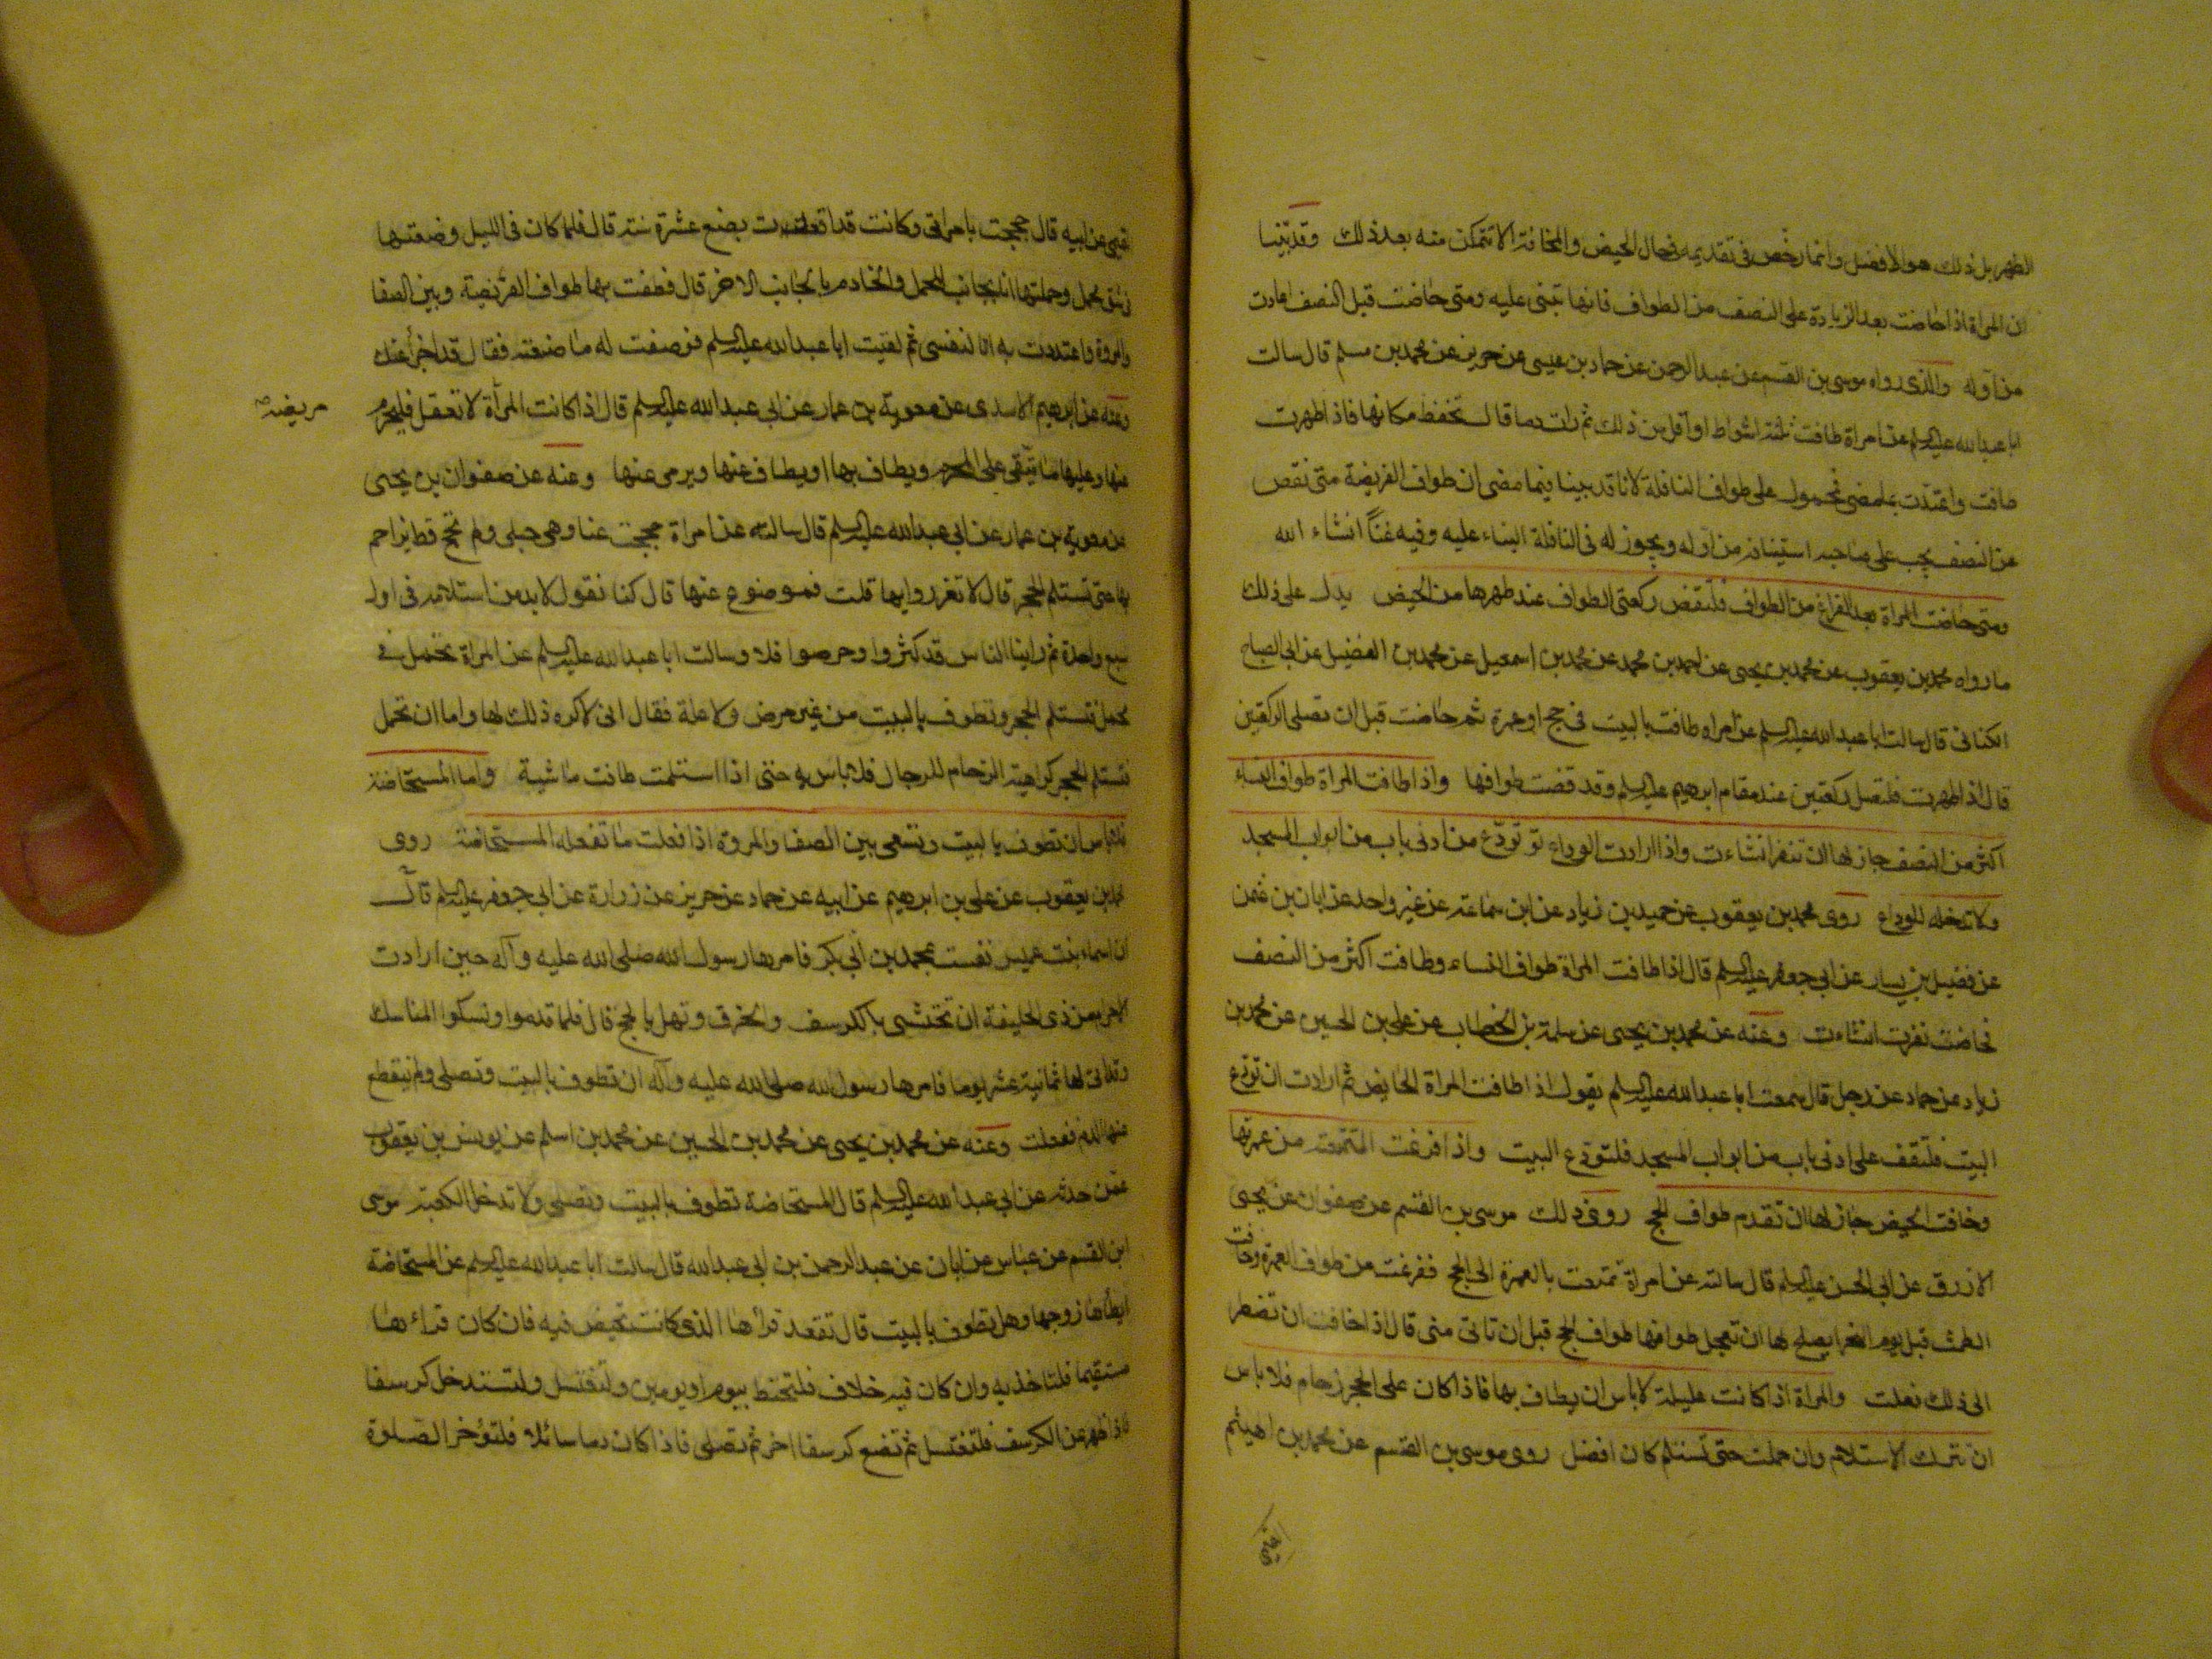 الظهر بل ذلك هو الافضل وانما رخص في تقديمه في حال الحيض والمخافة الا تتمكن منه بعد ذلك وقد بينا
ان المراة اذا حاضت بعد الزيادة على النصف من الطواف فانها تبنى عليه ومتى حاضت قبل النصف اعادت
من اوله والذى رواه موسى بن القسم عن عبد الرحمن عن حماد بن عيسى عن حريز عن محمد بن مسلم قال سالت
ابا عبد الله عليه السلم عن امراة طافت ثلثة اشواط او اقل من ذلك ثم رات دما قال تحفظ مكانها فاذا طهرت
طافت واعتدت بما مضى فمحمول على طواف النافلة لانا قد بينا فيما مضى ان طواف الفريضة متى نقص
عن النصف يجب على صاحبه استيناف من اوله ويجوز له في النافلة البناء عليه وفيه غنآ انشاء الله
ومتى حاضت المراة بعد الفراغ من الطواف فلتقض ركعتى الطواف عند طهرها من الحيض يدل على ذلك
ما رواه محمد بن يعقوب عن محمد بن يحيى عن احمد بن محمد عن محمد بن اسمعيل عن محمد بن الفضيل عن ابى الصباح
الكنانى قال سالت ابا عبد الله عليه السلم عن امراة طافت بالبيت في حج او عمرة ثم حاضت قبل ان تصلى الركعتين
قال اذا طهرت فلتصل ركعتين عند مقام ابرهيم عليه السلم وقد قضت طوافها واذا طافت المراة طواف النساء
اكثر من النصف جاز لها ان تنفر انشاءت واذا ارادت الوداع تودع من ادنى باب من ابواب المسجد
ولا تدخله للوداع روى محمد بن يعقوب عن حميد بن زياد عن ابن سماعة عن غير واحد عن ابان بن عثمن
عن فضيل بن يسار عن ابى جعفر عليه السلم قال اذا طافت المراة طواف النساء وطافت اكثر من النصف
فحاضت نفرت انشاءت وعنه عن محمد بن يحيى عن سلمة بن الخطاب عن على بن الحسين عن محمد بن
زياد عن حماد عن رجل قال سمعت ابا عبد الله عليه السلم يقول اذا طافت المراة الحايض ثم ارادت ان تودع
البيت فلتقف على ادنى باب من ابواب المسجد فلتودع البيت واذا فرغت المتمتعة من عمرتها
وخافت الحيض جاز لها ان تقدم طواف الحج روى ذلك موسى بن القسم عن صفوان عن يحيى
الازرق عن ابى الحسن عليه السلم قال سالته عن امراة تمتعت بالعمرة الى الحج ففرغت من طواف العمرة وخافت
الطمث قبل يوم النحر ايصلح لها ان تعجل طوافها طواف الحج قبل ان تاتى منى قال اذا خافت ان تضطر
الى ذلك فعلت والمراة اذا كانت عليلة لا باس ان يطاف بها فاذا كان على الحجر زحام فلا باس
ان تترك الاستلام وان حملت حتى تستلم كان افضل روى موسى بن القسم عن محمد بن الهيثم
التميمى عن ابيه قال حججت بامراتى وكانت قد اقعدت بضع عشرة سنة قال فلما كان فى الليل وضعتها
فى شق محمل وحملتها انا بجانب المحمل والخادم بالجانب الاخر قال فطفت بها طواف الفريضة وبين الصفا
والمروة واعتددت به انا لنفسى ثم لقيت ابا عبد الله عليه السلم فوصفت له ما صنعته فقال قد اجزأ عنك
وعنه عن ابرهيم الاسدى عن معوية بن عمار عن ابى عبد الله عليه السلم قال اذا كانت المرأة لا تعقل فليحرم
مريضة
عنها وعليها ما يتقى على المحرم ويطاف بها او يطاف عنها ويرمى عنها وعنه عن صفوان بن يحيى
عن معوية بن عمار عن ابى عبد الله عليه السلم قال سالته عن امراة حججت عنا وهى حبلى ولم تحج قط يزاحم
بها حتى تستلم الحجر قال لا تغرروا بها قلت فموضوع عنها قال كنا نقول لا بد من استلامه فى اول
سبع واحدة ثم راينا الناس قد كثروا وحرصوا فلا وسالت ابا عبد الله عليه السلم عن المراة تحمل فى
محمل تستلم الحجر وتطوف بالبيت من غير مرض ولا علة فقال انى لاكره ذلك لها واما ان تحمل
تستلم الحجر كراهية الزحام للرجال فلا باس به حتى اذا استلمت طافت ماشية واما المستحاضة
فلا باس ان تطوف بالبيت وتسعى بين الصفا والمروة اذا فعلت ما تفعله المستحاضة روى
محمد بن يعقوب عن على بن ابرهيم عن ابيه عن حماد عن حريز عن زرارة عن ابى جعفر عليه السلم قال
ان اسماء بنت عميس نفست بمحمد بن ابى بكر فامرها رسول الله صلى الله عليه وآله حين ارادت
الاحرام من ذى الحليفة ان تحتشى بالكرسف والخرق وتهل بالحج قال فلما قدموا ونسكوا المناسك
وقد اتى لها ثمانية عشر يوما فامرها رسول الله صلى الله عليه وآله ان تطوف بالبيت وتصلى ولم ينقطع
عنها الدم ففعلت وعنه عن محمد بن يحيى عن محمد بن الحسين عن محمد بن اسلم عن يونس بن يعقوب
عمن حدثه عن ابى عبد الله عليه السلم قال المستحاضة تطوف بالبيت وتصلى ولا تدخل الكعبة موسى
ابن القسم عن عباس عن ابان عن عبد الرحمن بن ابى عبد الله قال سالت ابا عبد الله عليه السلم عن المستحاضة
ايطأها زوجها وهل تطوف بالبيت قال تقعد قرأها الذى كانت تحيض فيه فان كان قراءها
مستقيما فلتاخذ به وان كان فيه خلاف فلتحتط بيوم او يومين ولتغتسل ولتستدخل كرسفا
فاذا ظهر عن الكرسف فلتغتسل ثم تضع كرسفا اخر ثم تصلى فاذا كان دما سائلا فلتؤخر الصلوة